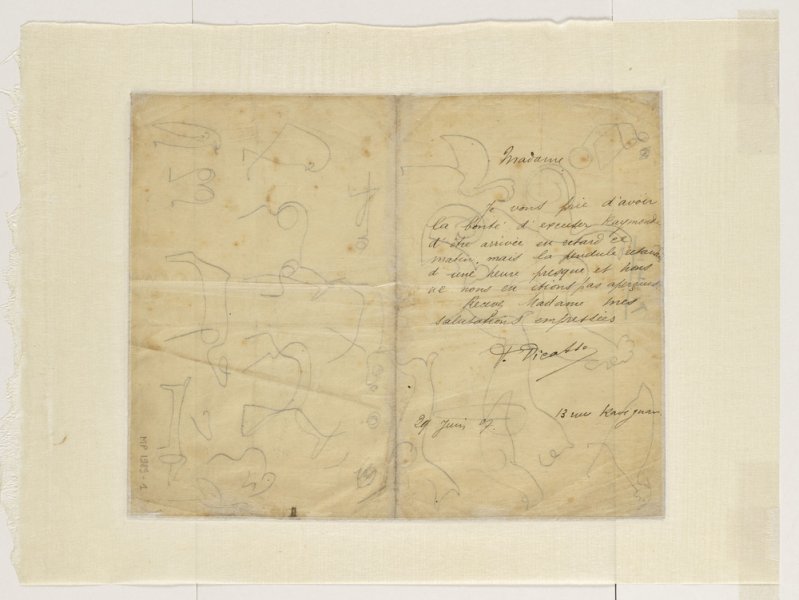 Madame,
Je vous prie d'avoir
la bonté d'excuser Raymonde
d'être arrivée en retard ce
matin, mais la pendule retarde
d'une heure presque et nous
ne nous en étions pas aperçus
Recevez Madame mes
salutations empressées
P. Picasso
13 rue Ravignan
29 Juin 07.
MP 1863-1